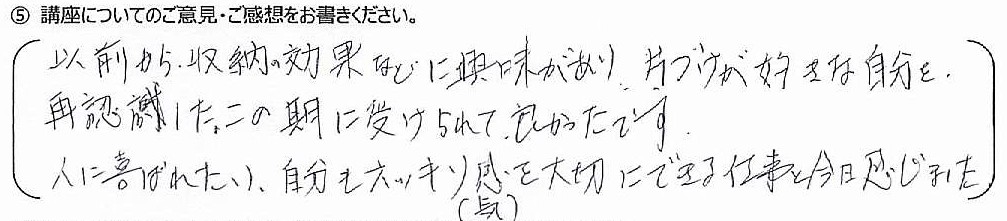 ⑤ 講座についてのご意見・ご感想をお書きください。
以前から、収納の効果などに興味があり、片づけが好きな自分を、
再認識した。この期に受けられて、良かったです。
人に喜ばれたい、自分もスッキリ感を大切にできる仕事と今日感じました
(気)